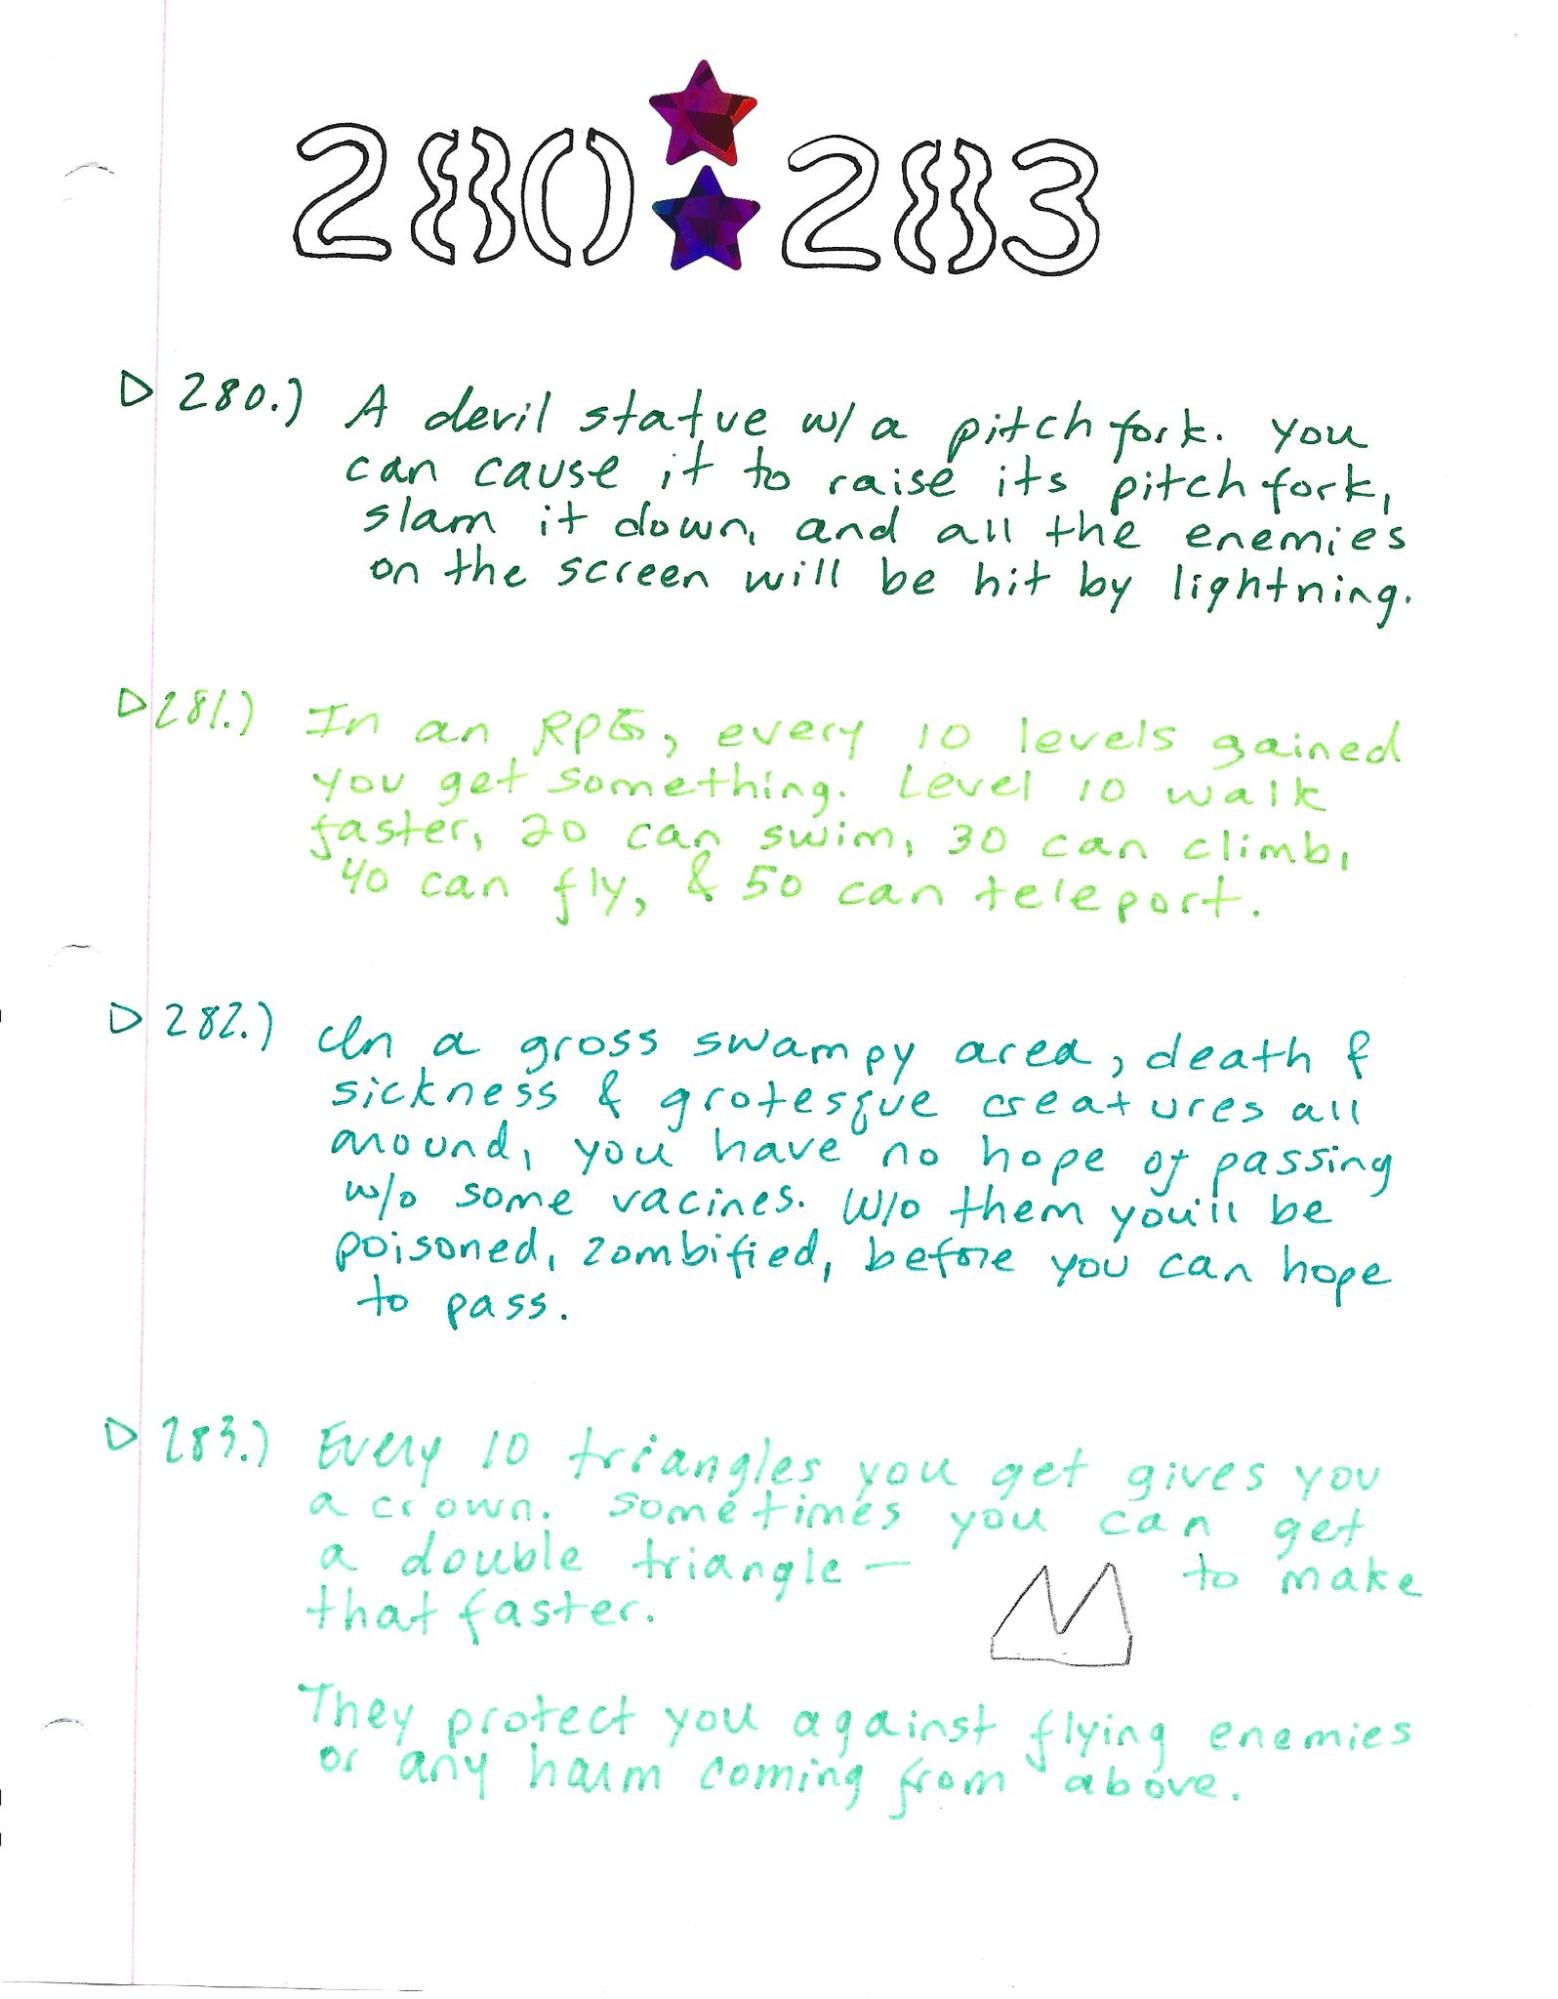 280 283
280.) A devil statue w/ a pitchfork. you
can cause it to raise its pitchfork,
slam it down, and all the enemies
on the screen will be hit by lightning.
281.) In an RPG, every 10 levels gained
you get something. Level 10 walk
faster, 20 can swim, 30 can climb,
40 can fly, & 50 can teleport.
282.) In a gross swampy area, death &
sickness & grotesque creatures all
around, you have no hope of passing
w/o some vacines. W/o them you'll be
poisoned, zombified, before you can hope
to pass.
283.) Every 10 triangles you get gives you
a crown. Sometimes you can get
a double triangle — to make
that faster.
They protect you against flying enemies
or any harm coming from above.